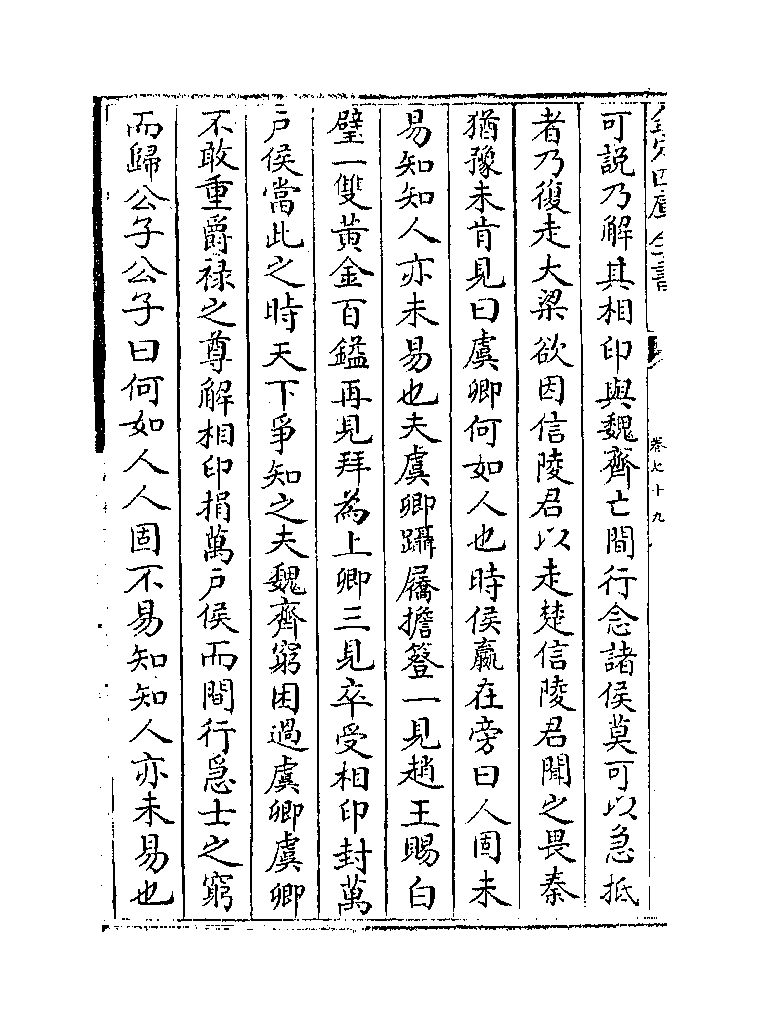 欽定四庫全書
卷七十九
可説乃解其相印與魏齊亡間行念諸侯莫可以急抵
者乃復走大梁欲因信陵君以走楚信陵君聞之畏秦
猶豫未肯見曰虞卿何如人也時侯嬴在旁曰人固未
易知知人亦未易也夫虞卿躡屩擔簦一見趙王賜白
璧一雙黃金百鎰再見拜為上卿三見卒受相印封萬
戸侯當此之時天下爭知之夫魏齊窮困過虞卿虞卿
不敢重爵禄之尊解相印捐萬戸侯而間行急士之窮
而歸公子公子曰何如人人固不易知知人亦未易也